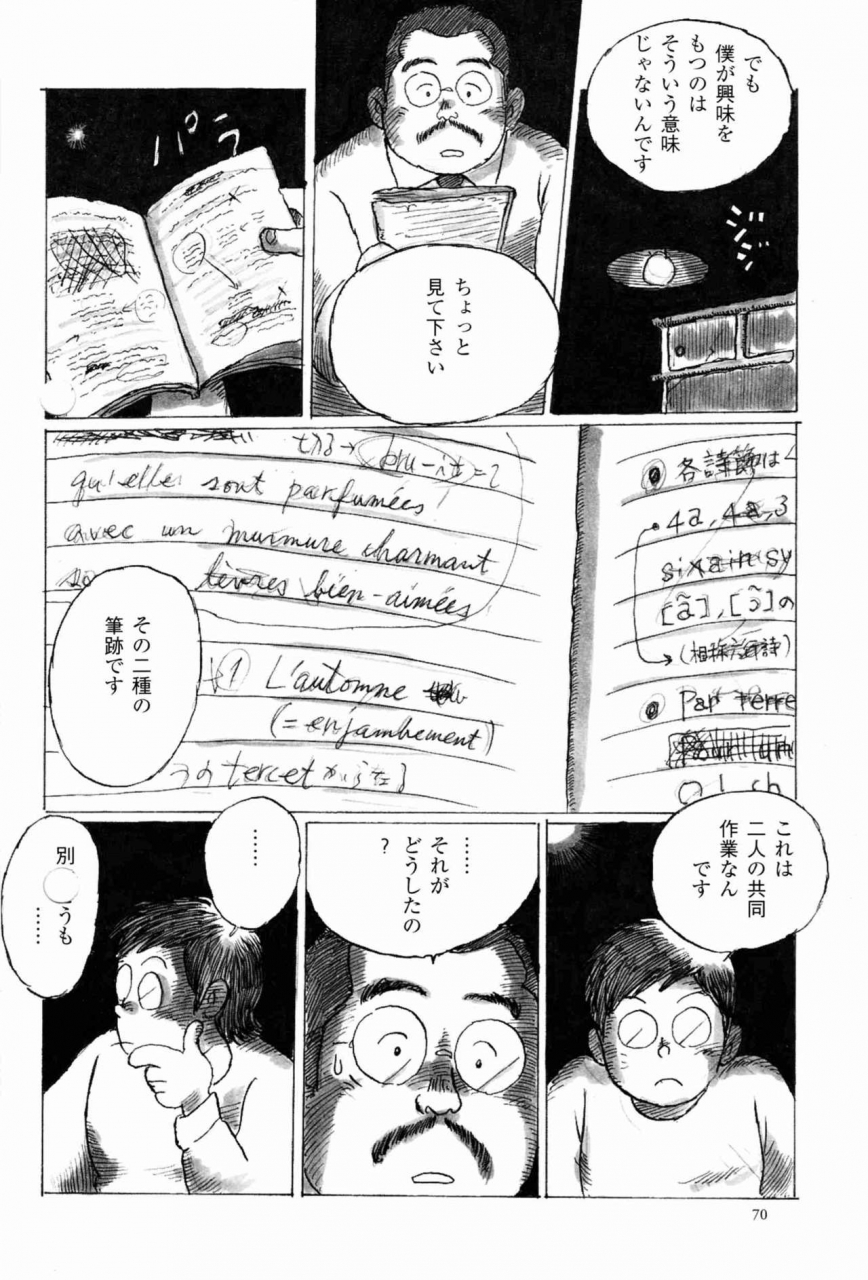 でも
僕が興味を
もつのは
そういう意味
じゃないんです
ジジ
ちょっと
見て下さい
パラ
各詩節は
4a, 4a, 3
sixain sy
[ã], [ɔ̃]の
(相称六行詩)
Par terre
qu'elles sont parfumées
avec un murmure charmant
lèvres bien-aimées
1 L'automne
(= enjambement)
tercet から
その二種の
筆跡です
これは
二人の共同
作業なん
です
……
それが
どうしたの
?
……
別 うも
……
70